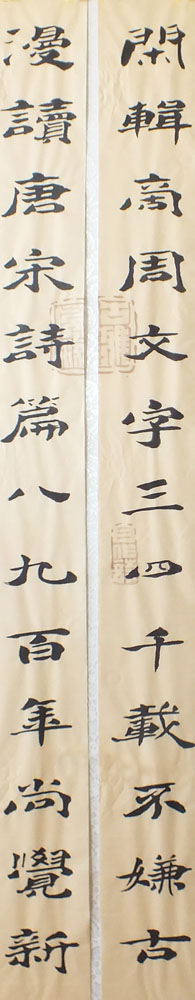 閑輯商周文字三四千載不嫌古
漫讀唐宋詩篇八九百年尚覺新